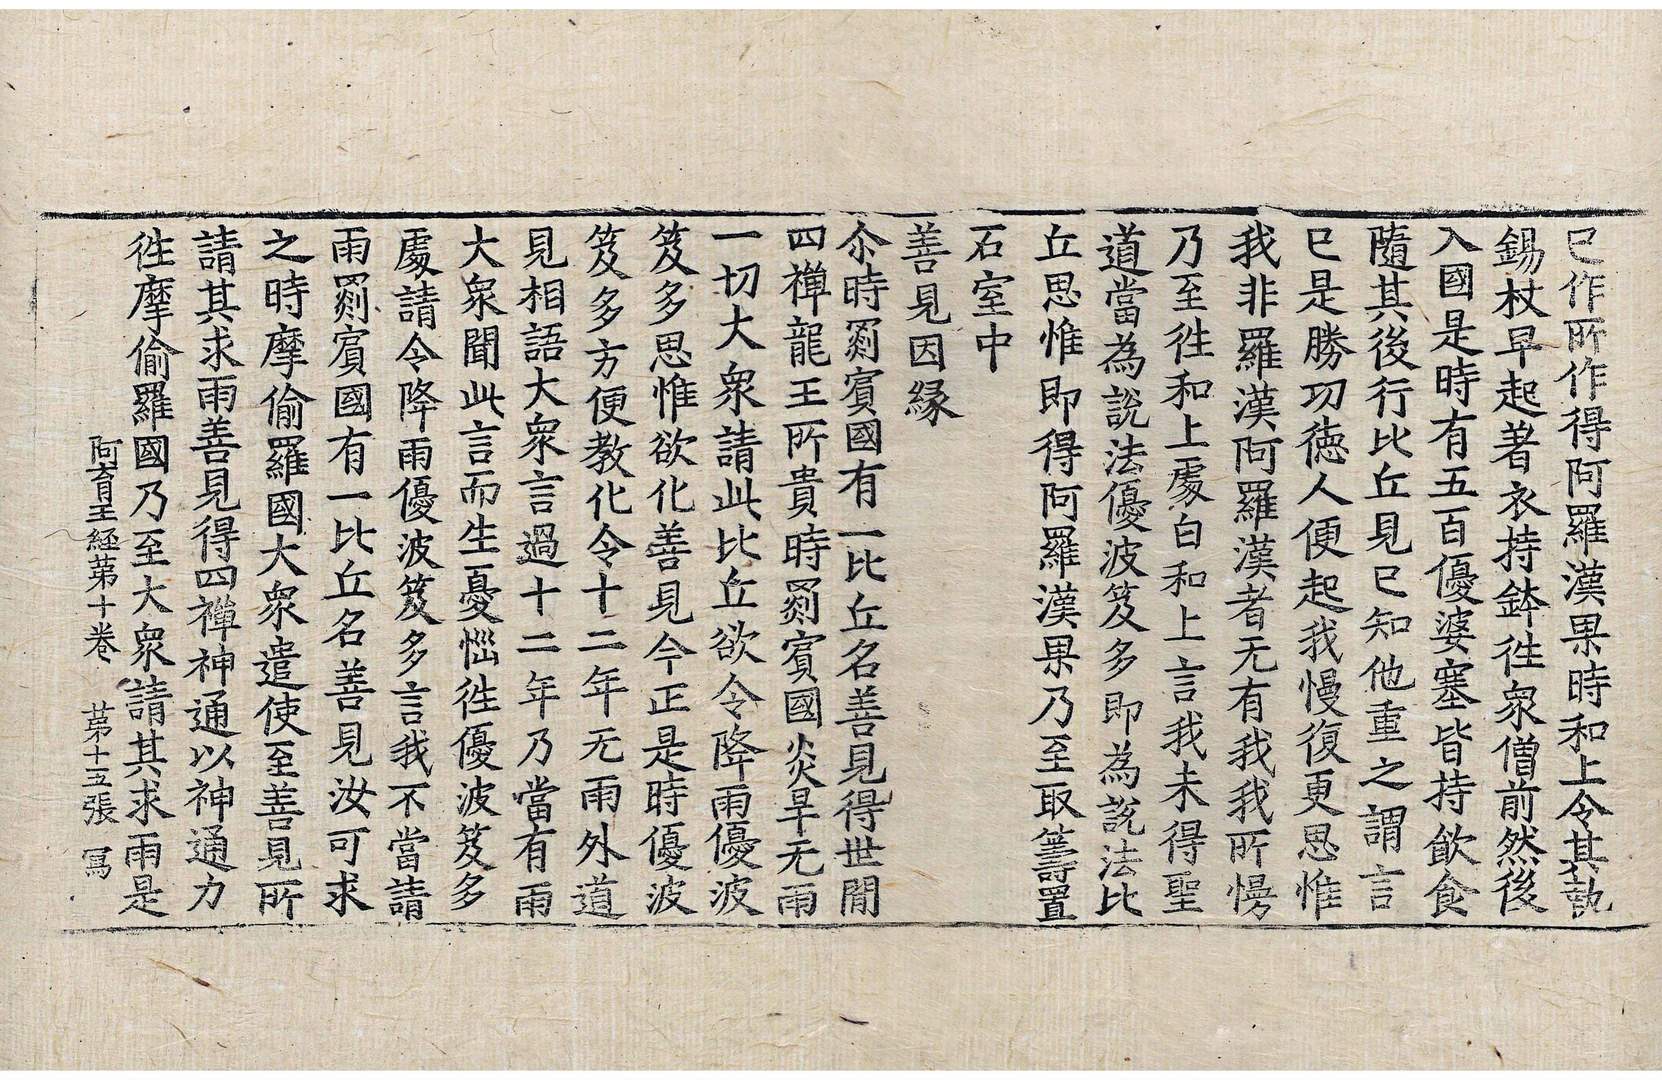 已作所作得阿羅漢果時和上令其執
錫杖早起著衣持鉢徃衆僧前然後
入國是時有五百優婆塞皆持飮食
隨其後行比丘見已知他重之謂言
已是勝功徳人便起我慢復更思惟
我非羅漢阿羅漢者无有我我所慢
乃至徃和上處白和上言我未得聖
道當為說法優波笈多即為說法比
丘思惟即得阿羅漢果乃至取籌置
石室中
善見因縁
尒時罽賓國有一比丘名善見得世間
四禪龍王所貴時罽賓國炎旱无雨
一切大衆請此比丘欲令降雨優波
笈多思惟欲化善見今正是時優波
笈多方便教化令十二年无雨外道
見相語大衆言過十二年乃當有雨
大衆聞此言而生憂惱徃優波笈多
處請令降雨優波笈多言我不當請
雨罽賓國有一比丘名善見汝可求
之時摩偷羅國大衆遣使至善見所
請其求雨善見得四禪神通以神通力
徃摩偷羅國乃至大衆請其求雨是
阿育王經苐十卷 苐十五張 冩